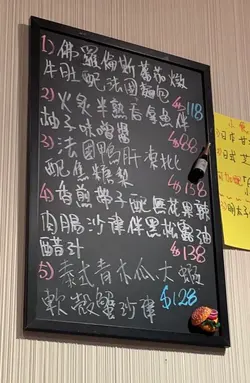 1) 佛羅倫斯蕃茄燉
牛肚配法國麵包
$118
2) 火炙半熟吞拿魚伴
柚子味噌醬
$88
3) 法國鴨肝凍批
配焦糖梨
$138
4) 香煎帶子配無花果辣
肉腸沙律伴黑松露油
醋汁
$138
5) 泰式青木瓜大蝦
軟殼蟹沙律
$128